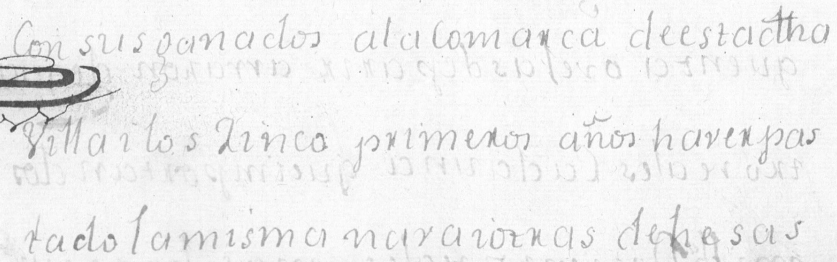 Con sus ganados ala Comarca deestadtha
Villa i los Zinco primeros años haver pas
tado la misma nava i otras dehesas